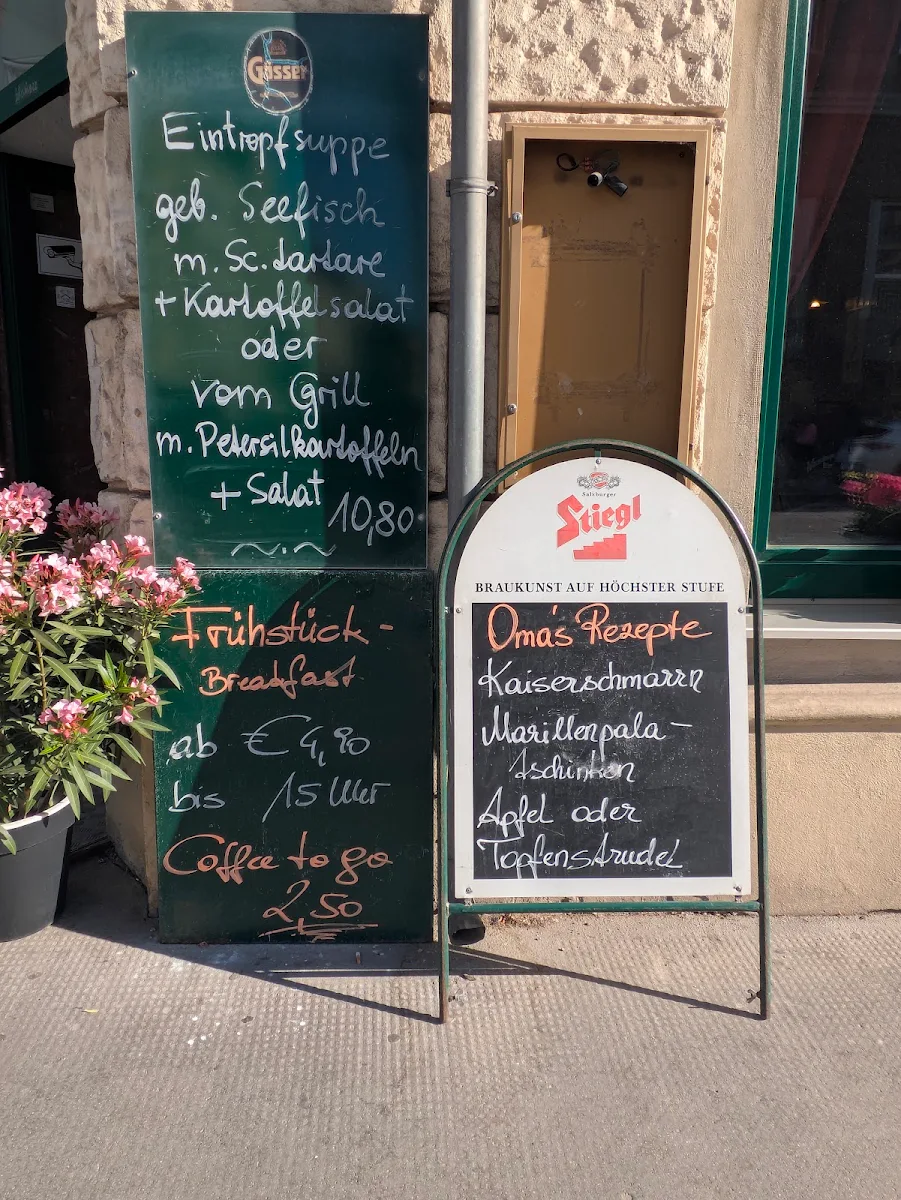 Gösser
Eintropfsuppe
geb. Seefisch
m. Sc. tartare
+ Kartoffelsalat
oder
vom Grill
m. Petersilkartoffeln
+ Salat
10,80
Frühstück -
Breakfast
ab € 4,90
bis 15 Uhr
Coffee to go
2,50
Salzburger
Stiegl
BRAUKUNST AUF HÖCHSTER STUFE
Oma's Rezepte
Kaiserschmarrn
Marillenpala-
tschinken
Apfel oder
Topfenstrudel